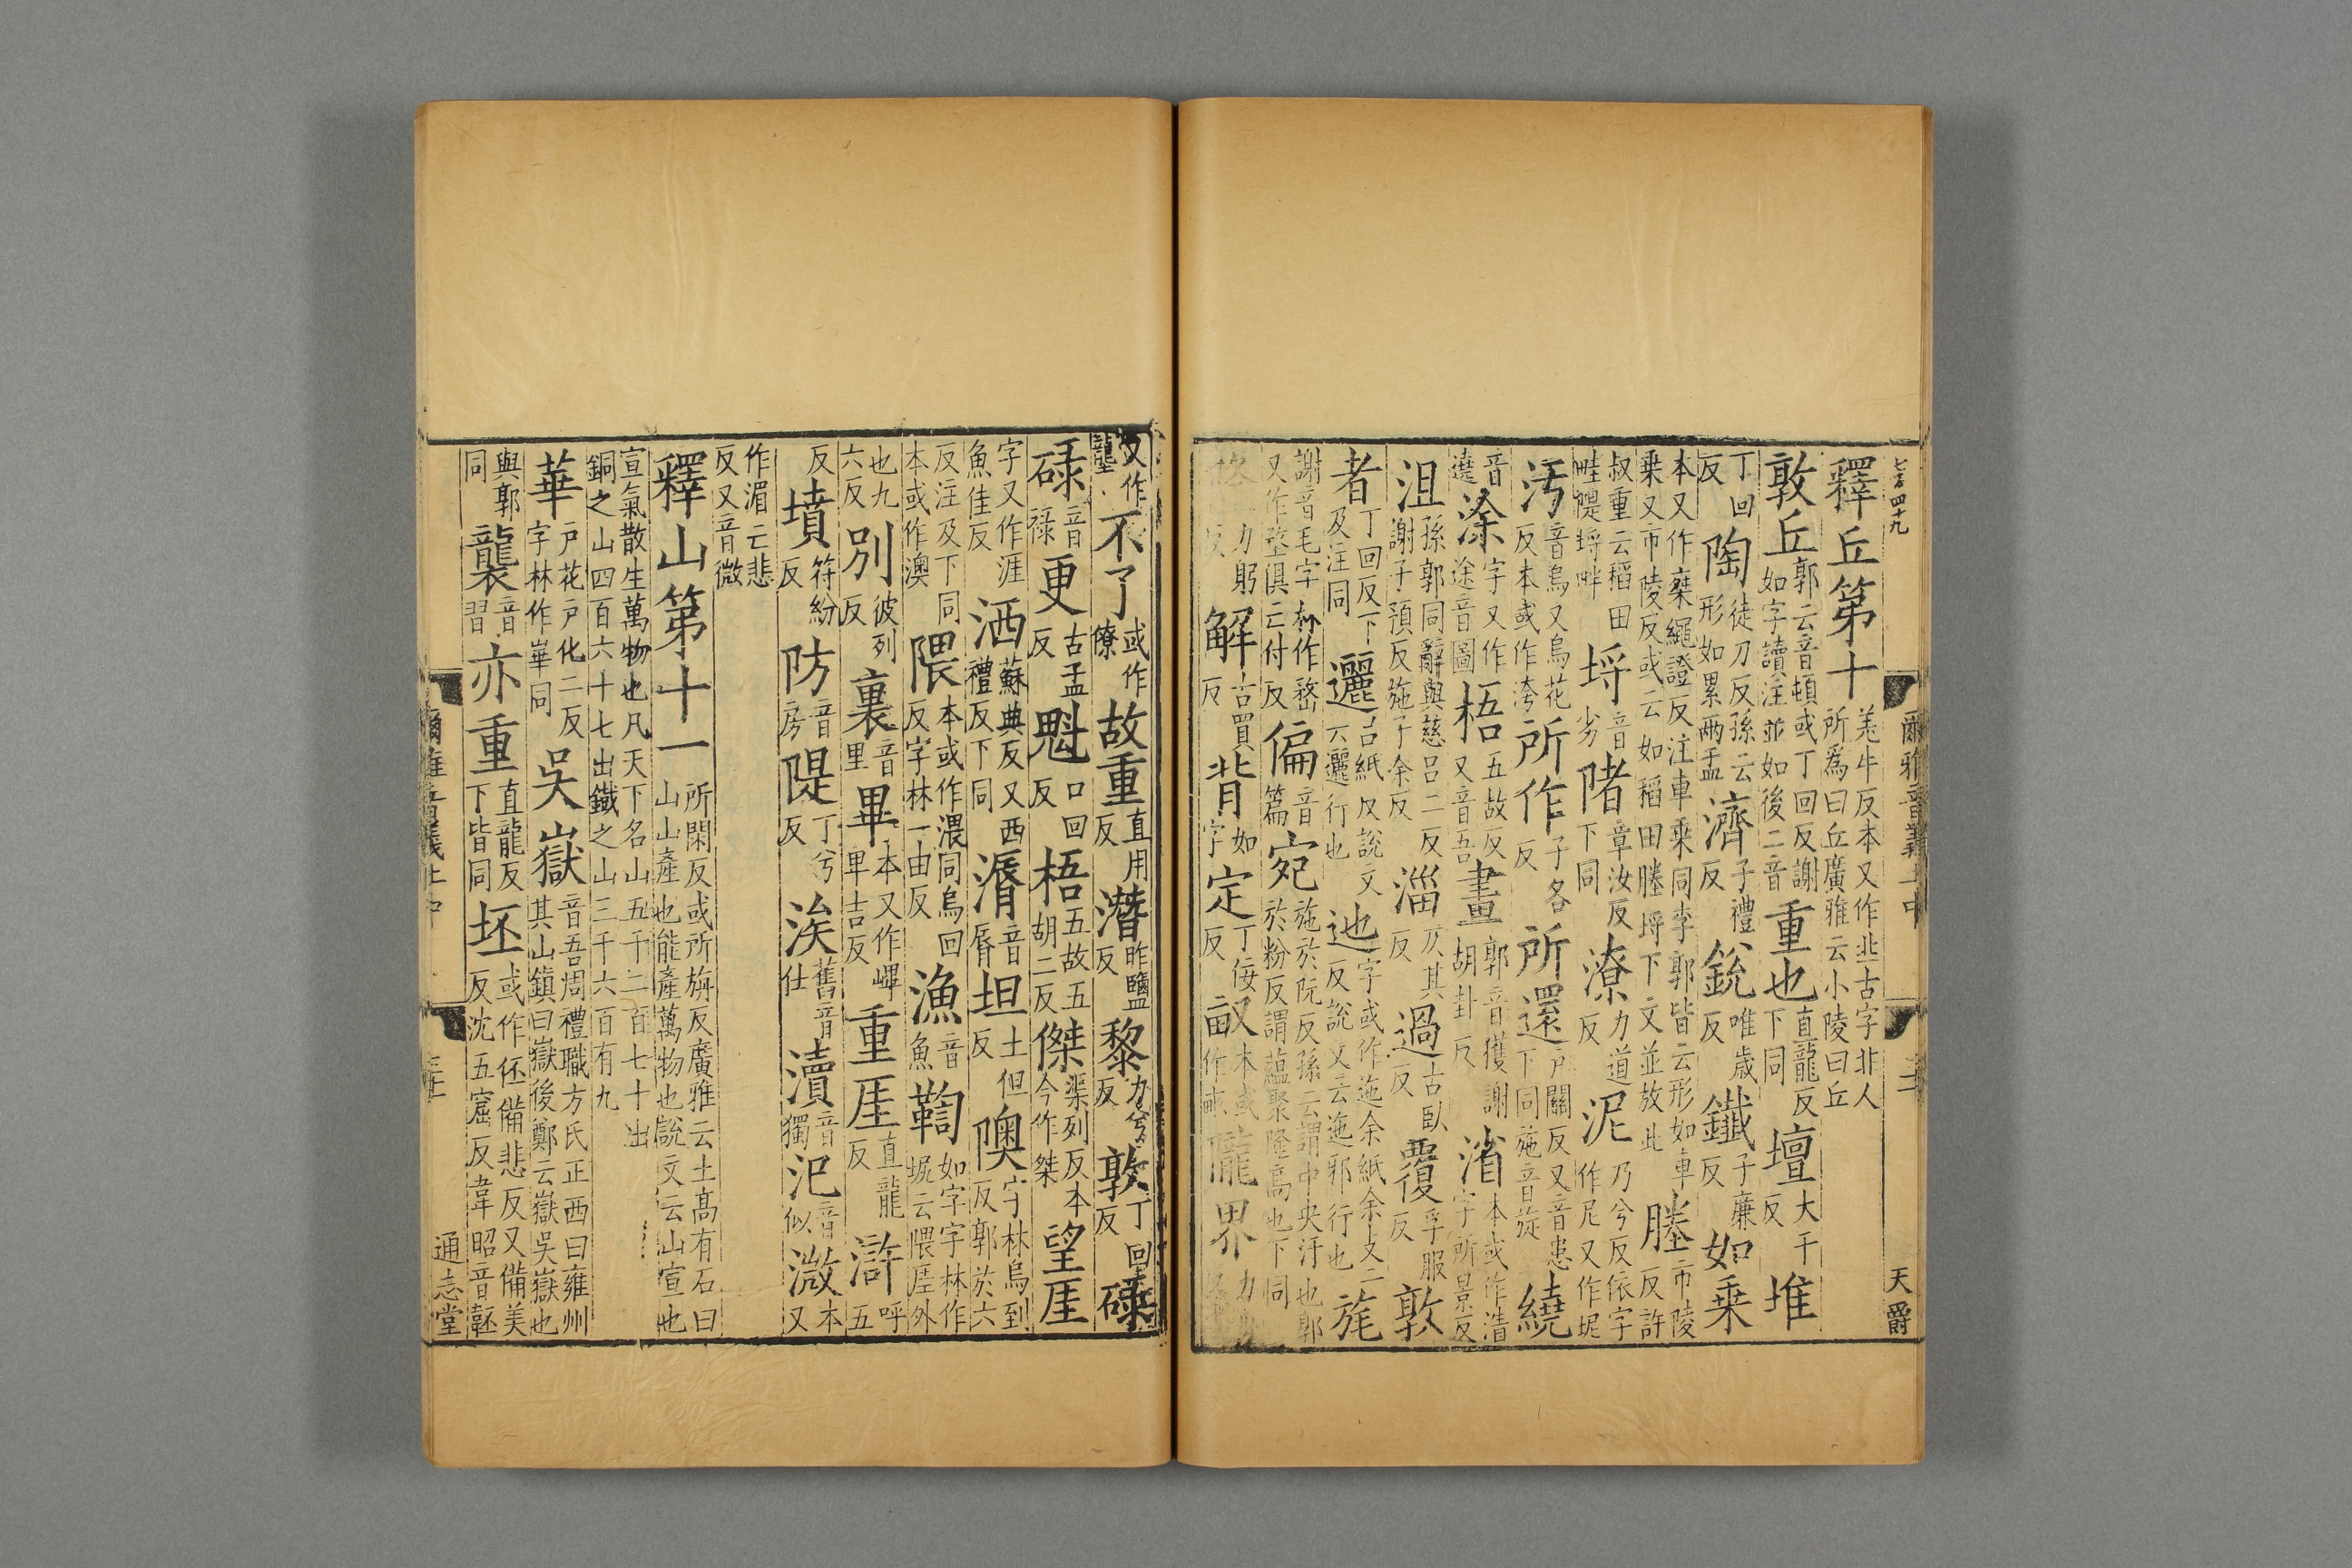 七百四十九
爾雅音義上中
天爵
釋丘第十 羌牛反本又作丠古字非人所為曰丘廣雅云小陵曰丘
敦丘 郭云音頓或丁回反謝如字讀注並如後二音 重也 直龍反下同 壇 大千反 堆
丁回反 陶 徒刀反孫云形如累兩盂 濟 子禮反 銳 唯歲反 鐵 子廉反 如乘
本又作椉繩證反注車乘同李郭皆云形如車乘又市陵反或云如稻田塍埒下文並放此 塍 市陵反許
叔重云稻田畦隄埒畔 埒 音劣 陼 章汝反下同 潦 力道反 泥 乃兮反依字作尼又作坭
汚 音烏又烏花反本或作洿 所作 子各反 所還 戶關反又音患下同施音旋 繞
音遶 涂 字又作途音圖 梧 五故反又音吾 畫 郭音獲謝胡卦反 渻 本或作渻字所景反
沮 孫郭同辭與慈呂二反謝子預反施子余反 淄 仄其反 過 古臥反 覆 孚服反 敦
者 丁回反下及注同 邐 呂紙反說文云邐行也 迆 字或作迤余紙余支二反說文云迤邪行也 旄
謝音毛字林作嵍又作堥俱云付反 偏 音篇 宛 施於阮反孫云謂中央汙也郭於粉反謂蘊聚隆高也下同
力躬反 解 古買反 背 如字 定 丁佞反 畝 本或作畞 隴界
又作壟 不了 或作憭 故重 直用反 潛 昨鹽反 黎 力兮反 敦 丁回反 碌
碌 音祿 更 古孟反 魁 口回反 梧 五故五胡二反 傑 渠列反本今作桀 望厓
字又作涯魚佳反 洒 蘇典反又西禮反下同 漘 音脣 坦 土但反 隩 字林烏到反郭於六
反注及下同本或作澳 隈 本或作渨同烏回反字林一由反 漁 音魚 鞫 如字字林作坭云隈厓外
也九六反 別 彼列反 裏 音里 畢 本又作㟫卑吉反 重厓 直龍反 滸 呼五
反 墳 符紛反 防 音房 隄 丁兮反 涘 舊音仕 瀆 音獨 汜 音似 溦 本又
作湄云悲反又音微
釋山第十一 所閑反或所旃反廣雅云土高有石曰山山產也能產萬物也說文云山宣也
宣氣散生萬物也凡天下名山五千二百七十出銅之山四百六十七出鐵之山三千六百有九
華 戶花戶化二反字林作崋同 吳嶽 音吾周禮職方氏正西曰雍州其山鎮曰嶽後鄭云嶽吳嶽也
與郭同 襲 音習 亦重 直龍反下皆同 坯 或作伾備悲反又備美反沈五窟反韋昭音㔻
爾雅音義上中
通志堂